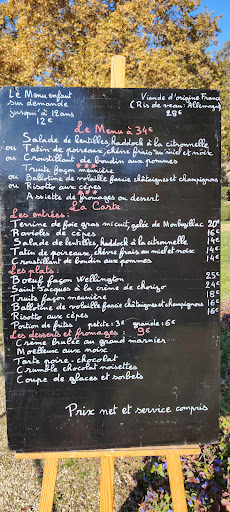 Le Menu enfant
sur demande
jusqu'à 12 ans
12€
Viande d'origine France
(Ris de veau: Allemagne)
Le Menu à 34€
Salade de lentilles, haddock à la citronnelle
ou Tatin de poireaux, chèvre frais au miel et noix
ou Croustillant de boudin aux pommes
***
Truite façon meunière
ou Ballotine de volaille farcie châtaignes et champignons
ou Risotto aux cèpes
***
Assiette de fromages ou dessert
La Carte
Les entrées:
Terrine de foie gras mi cuit, gelée de Monbazillac 20€
Ravioles de cèpes 16€
Salade de lentilles, haddock à la citronnelle 14€
Tatin de poireaux, chèvre frais au miel et noix 14€
Croustillant de boudin aux pommes 14€
Les plats:
Boeuf façon Wellington 25€
Saint Jacques à la crème de chorizo 24€
Truite façon meunière 18€
Ballotine de volaille farcie châtaignes et champignons 16€
Risotto aux cèpes 16€
Portion de frites petite: 3€ grande: 6€
Les desserts et fromages: 9€
Crème brulée au grand marnier
Moelleux aux noix
Tarte poire-chocolat
Crumble chocolat noisettes
Coupe de glaces et sorbets
Prix net et service compris